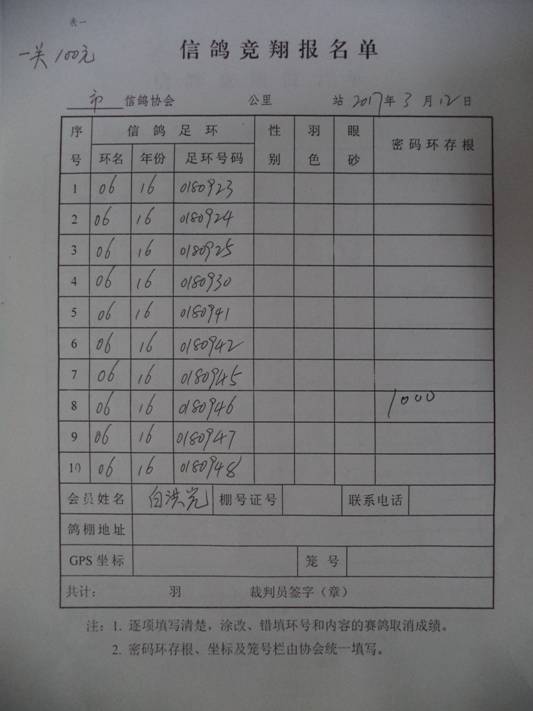 表一
一关 100元
信鸽竞翔报名单
市 信鸽协会 公里 站 2017年3月12日
序号 信鸽足环 性别 羽色 眼砂 密码环存根
环名 年份 足环号码
1 06 16 0180923
2 06 16 0180924
3 06 16 0180925
4 06 16 0180930
5 06 16 0180941
6 06 16 0180942
7 06 16 0180945
8 06 16 0180946 1000
9 06 16 0180947
10 06 16 0180948
会员姓名 白洪 棚号证号 联系电话
鸽棚地址
GPS坐标 笼号
共计: 羽 裁判员签字（章）
注：1. 逐项填写清楚，涂改、错填环号和内容的赛鸽取消成绩。
2. 密码环存根、坐标及笼号栏由协会统一填写。